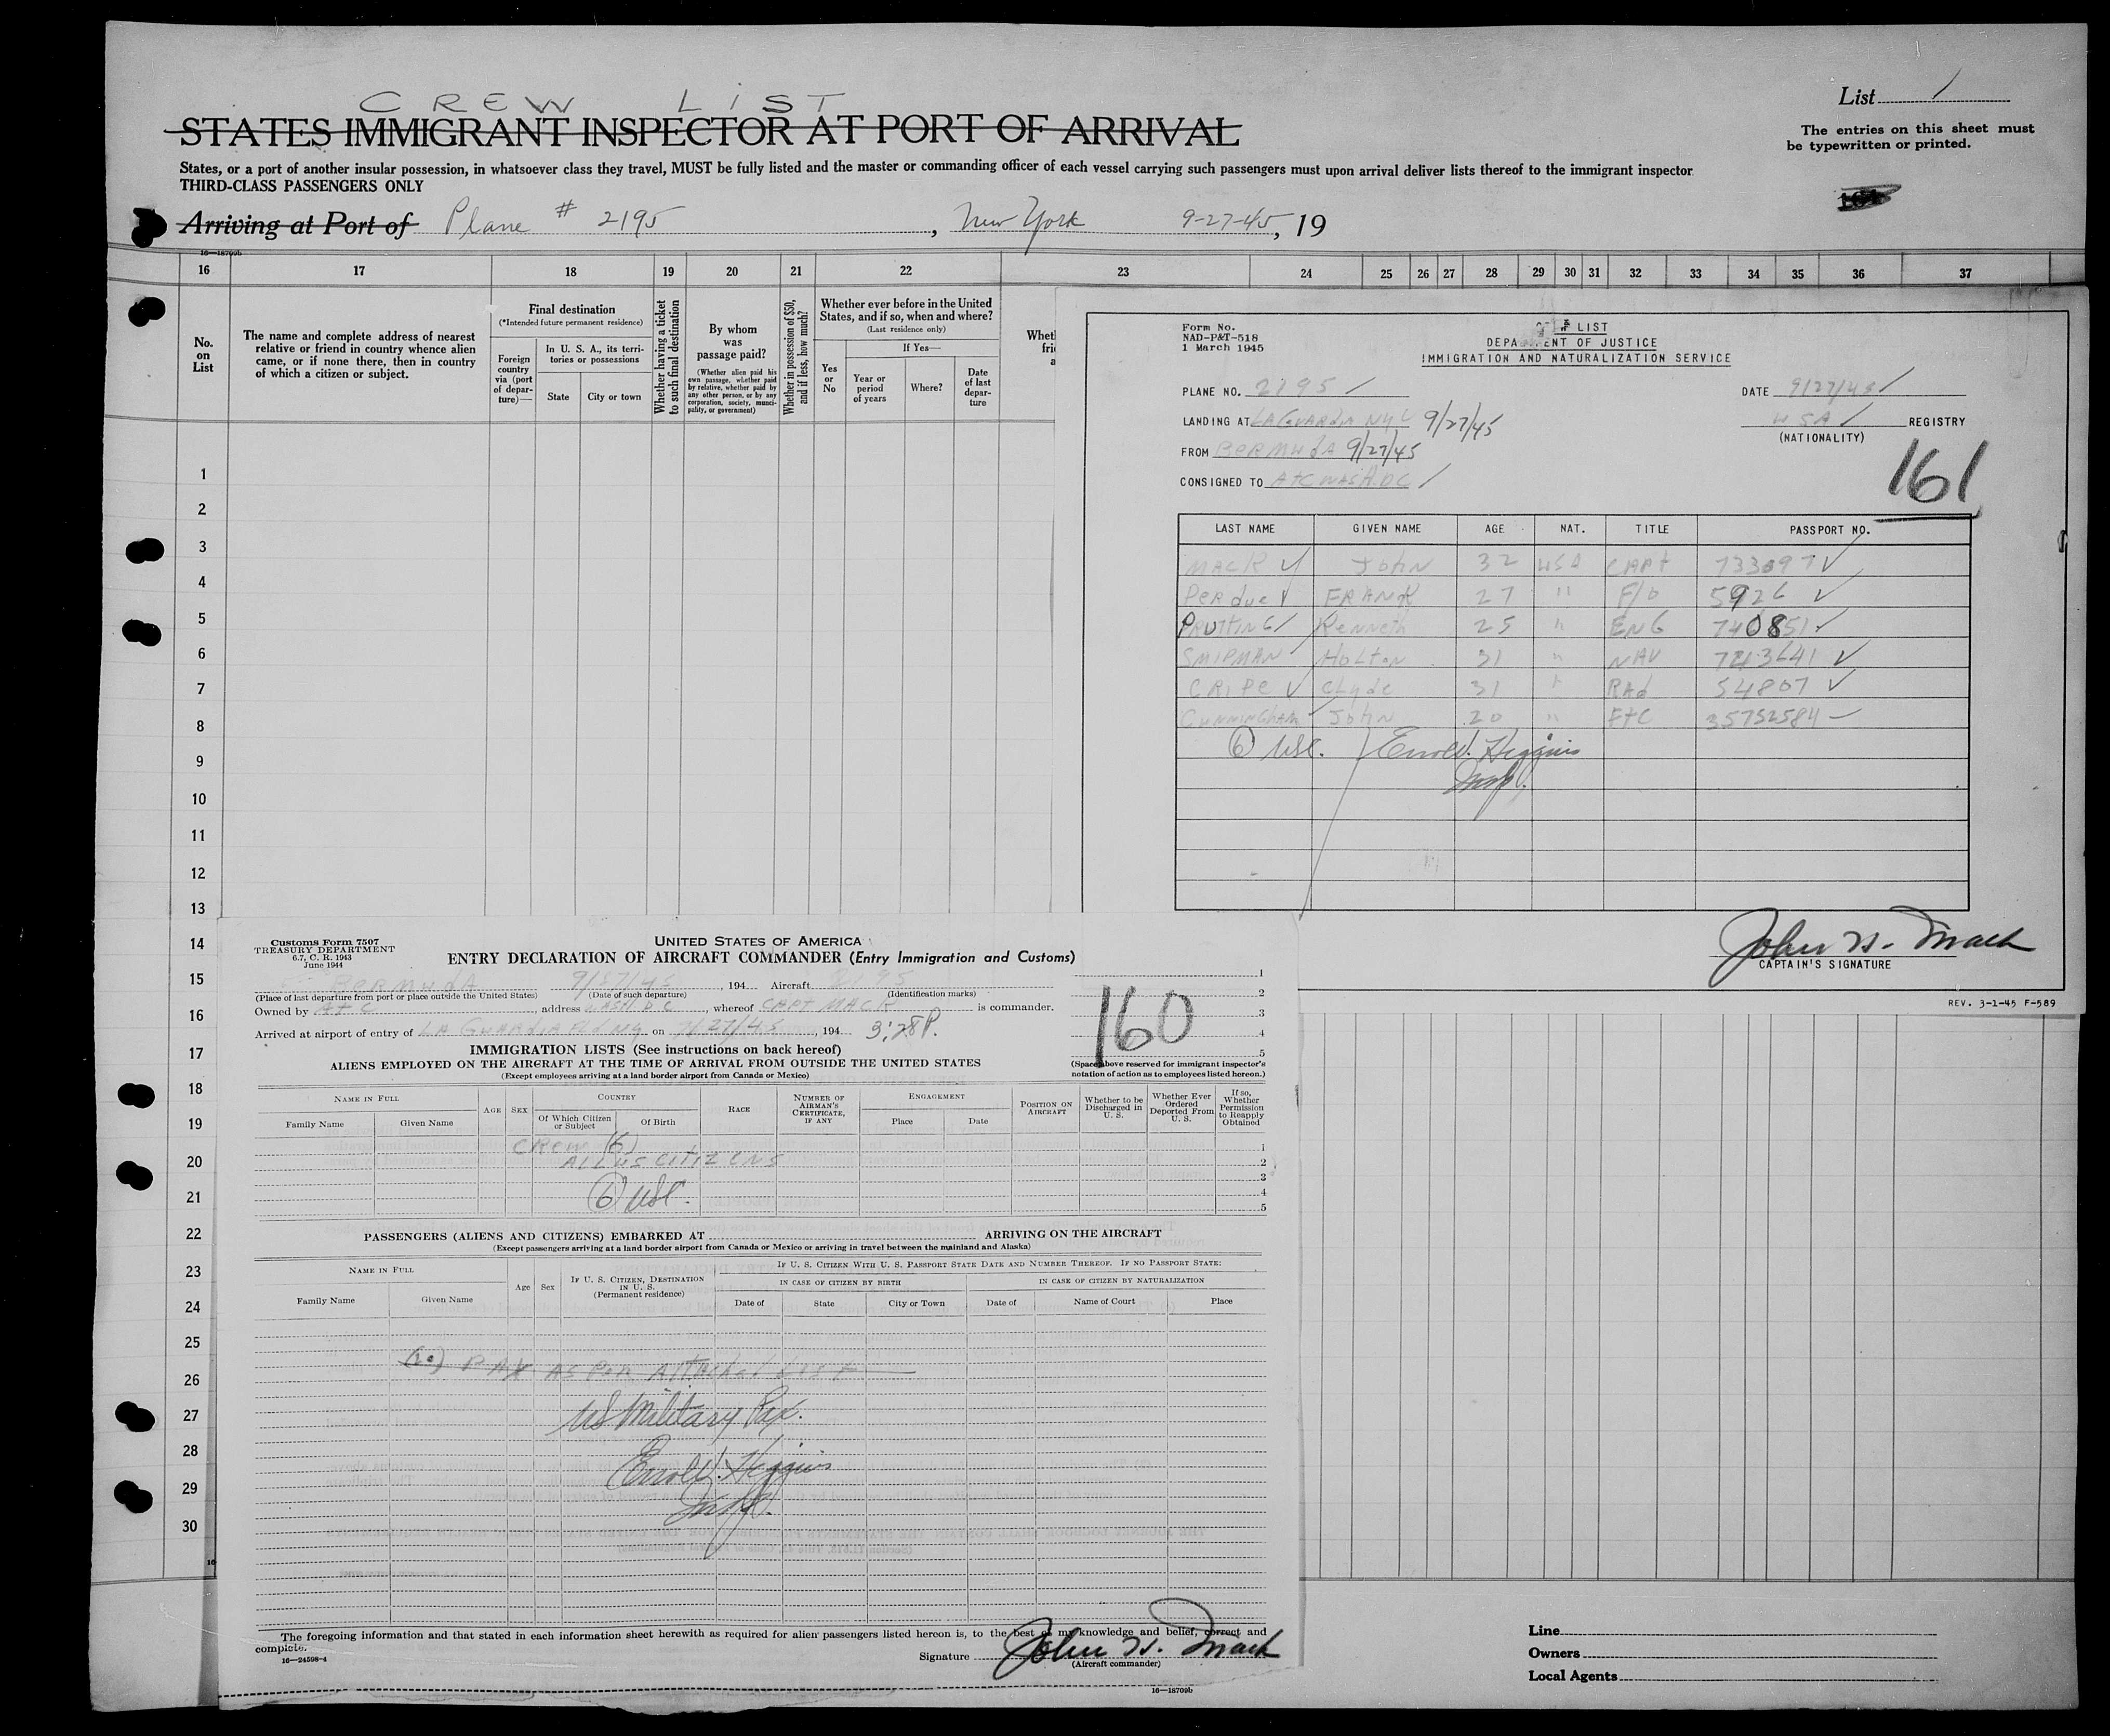 CREW LIST
STATES IMMIGRANT INSPECTOR AT PORT OF ARRIVAL
List 1
The entries on this sheet must
be typewritten or printed.
States, or a port of another insular possession, in whatsoever class they travel, MUST be fully listed and the master or commanding officer of each vessel carrying such passengers must upon arrival deliver lists thereof to the immigrant inspector
THIRD-CLASS PASSENGERS ONLY
Arriving at Port of Plane # 2195, New York 9-27-45, 19
16—18709b
16 17 18 19 20 21 22 23 24 25 26 27 28 29 30 31 32 33 34 35 36 37
No. on List
The name and complete address of nearest relative or friend in country whence alien came, or if none there, then in country of which a citizen or subject.
Final destination
(*Intended future permanent residence)
Foreign country via (port of departure)—
In U. S. A., its territories or possessions
State
City or town
Whether having a ticket to such final destination
By whom was passage paid?
(Whether alien paid his own passage, whether paid by relative, whether paid by any other person, or by any corporation, society, municipality, or government)
Whether in possession of $50, and if less, how much?
Whether ever before in the United States, and if so, when and where?
(Last residence only)
If Yes—
Yes or No
Year or period of years
Where?
Date of last departure
1
2
3
4
5
6
7
8
9
10
11
12
13
14
15
16
17
18
19
20
21
22
23
24
25
26
27
28
29
30
Form No.
NAD-P&T-518
1 March 1945
LIST
DEPARTMENT OF JUSTICE
IMMIGRATION AND NATURALIZATION SERVICE
PLANE NO. 2195
DATE 9/27/45
LANDING AT LAGUARDIA NYC 9/27/45
USA REGISTRY
(NATIONALITY)
FROM BERMUDA 9/27/45
CONSIGNED TO ATC WASH. DC
161
LAST NAME GIVEN NAME AGE NAT. TITLE PASSPORT NO.
MACK John 32 USA CAPT 733097
Perdue FRANK 27 " F/O 5926
PRUTTING Kenneth 25 " ENG 740851
SHIPMAN Holton 31 " NAV 723641
CRIPE Clyde 31 " RAd 54807
CUNNINGHAM John 20 " FTC 35752584
(6) USC. Errol Higgins
Insp.
John H. Mack
CAPTAIN'S SIGNATURE
REV. 3-1-45 F-589
Customs Form 7507
TREASURY DEPARTMENT
6.7, C. R. 1943
June 1944
UNITED STATES OF AMERICA
ENTRY DECLARATION OF AIRCRAFT COMMANDER (Entry Immigration and Customs)
BERMUDA 9/27/45, 194 Aircraft 2195
(Place of last departure from port or place outside the United States) (Date of such departure) (Identification marks)
Owned by ATC, address WASH DC, whereof CAPT MACK is commander.
Arrived at airport of entry of LA GUARDIA FLD NY on 9/27/45, 194 3:28P.
160
1
2
3
4
5
(Space above reserved for immigrant inspector's notation of action as to employees listed hereon.)
IMMIGRATION LISTS (See instructions on back hereof)
ALIENS EMPLOYED ON THE AIRCRAFT AT THE TIME OF ARRIVAL FROM OUTSIDE THE UNITED STATES
(Except employees arriving at a land border airport from Canada or Mexico)
NAME IN FULL
Family Name Given Name
AGE SEX
COUNTRY
Of Which Citizen or Subject
Of Birth
RACE
NUMBER OF AIRMAN'S CERTIFICATE, IF ANY
ENGAGEMENT
Place Date
POSITION ON AIRCRAFT
Whether to be Discharged in U. S.
Whether Ever Ordered Deported From U. S.
If so, Whether Permission to Reapply Obtained
CREW (6)
ALL US CITIZENS
(6) USC.
1
2
3
4
5
PASSENGERS (ALIENS AND CITIZENS) EMBARKED AT ARRIVING ON THE AIRCRAFT
(Except passengers arriving at a land border airport from Canada or Mexico or arriving in travel between the mainland and Alaska)
NAME IN FULL
Family Name Given Name
Age Sex
IF U. S. CITIZEN, DESTINATION IN U. S. (Permanent residence)
IF U. S. CITIZEN WITH U. S. PASSPORT STATE DATE AND NUMBER THEREOF. IF NO PASSPORT STATE:
IN CASE OF CITIZEN BY BIRTH
IN CASE OF CITIZEN BY NATURALIZATION
Date of State City or Town Date of Name of Court Place
PAX AS PER Attached LIST
US Military Pax.
Errol Higgins
Insp.
The foregoing information and that stated in each information sheet herewith as required for alien passengers listed hereon is, to the best of my knowledge and belief, correct and
complete.
16—24598-4
Signature John H. Mack
(Aircraft commander)
16—18709b
Line
Owners
Local Agents